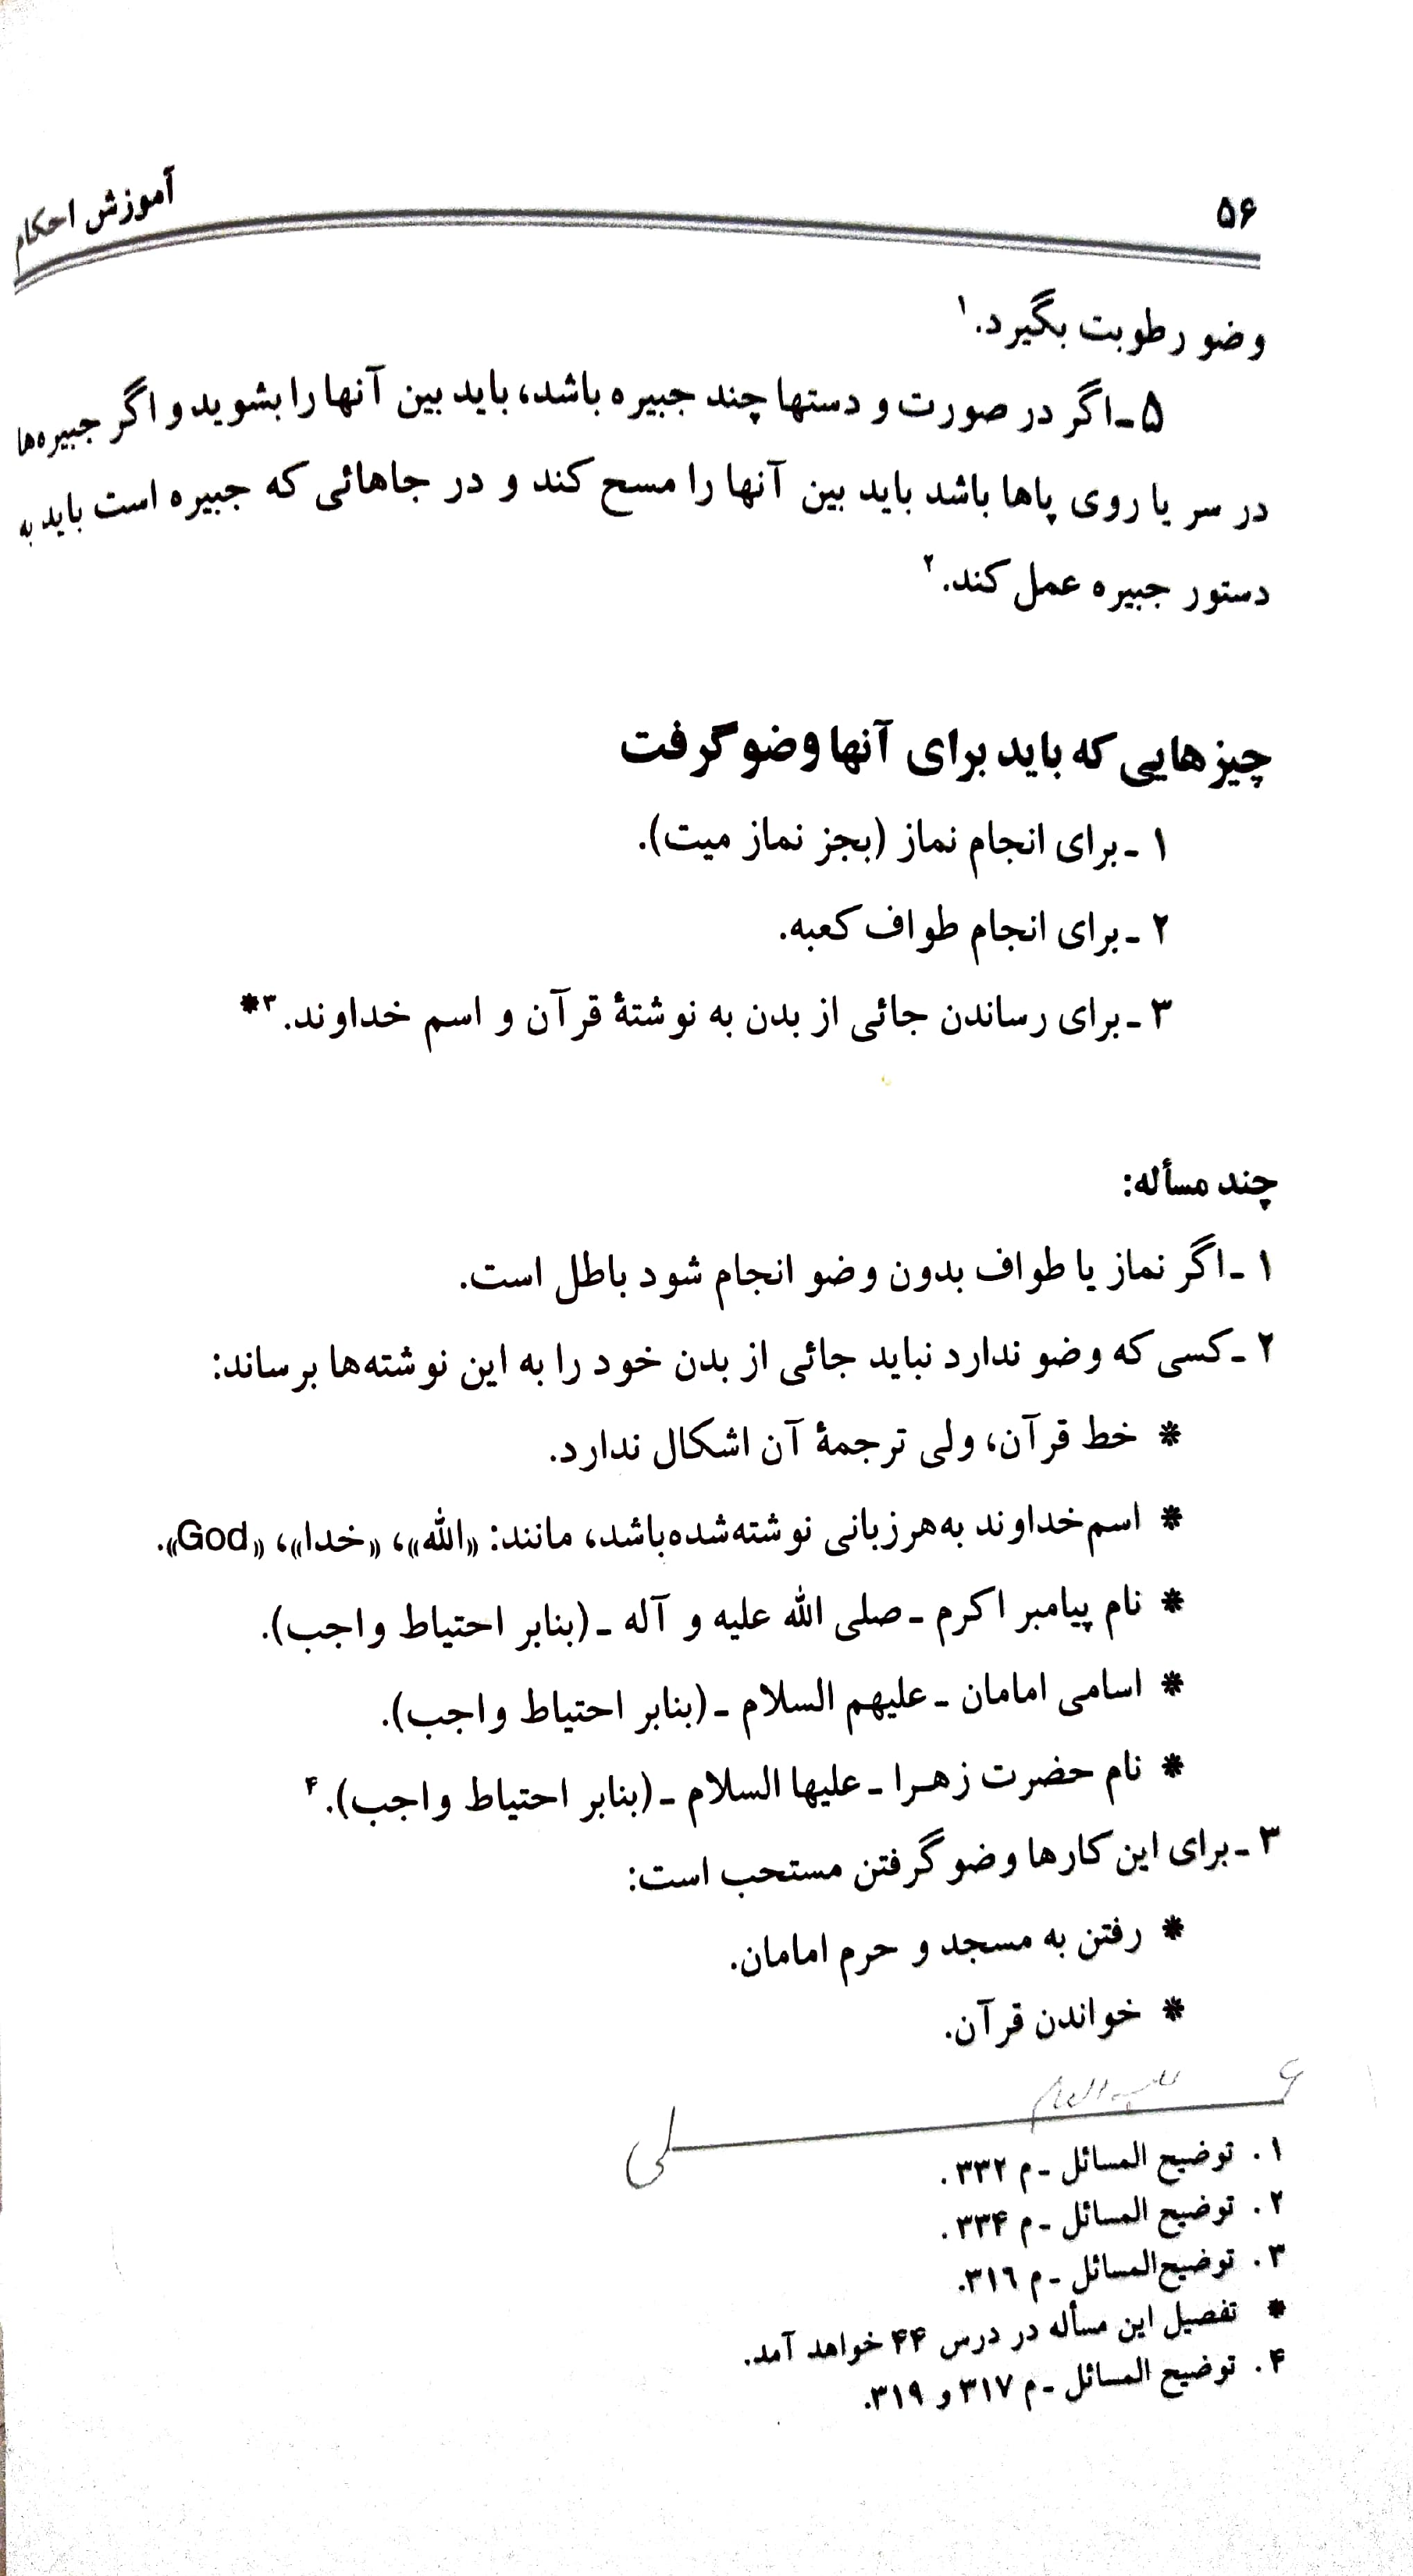 ۵۶
آموزش احکام
وضو رطوبت بگیرد.۱
۵ـ اگر در صورت و دستها چند جبیره باشد، باید بین آنها را بشوید و اگر جبیره‌ها
در سر یا روی پاها باشد باید بین آنها را مسح کند و در جاهائی که جبیره است باید به
دستور جبیره عمل کند.۲
چیزهایی که باید برای آنها وضو گرفت
۱ ـ برای انجام نماز (بجز نماز میت).
۲ ـ برای انجام طواف کعبه.
۳ ـ برای رساندن جائی از بدن به نوشتهٔ قرآن و اسم خداوند.۳*
چند مسأله:
۱ ـ اگر نماز یا طواف بدون وضو انجام شود باطل است.
۲ ـ کسی که وضو ندارد نباید جائی از بدن خود را به این نوشته‌ها برساند:
* خط قرآن، ولی ترجمهٔ آن اشکال ندارد.
* اسم خداوند به هر زبانی نوشته شده باشد، مانند: «الله»، «خدا»، «God».
* نام پیامبر اکرم ـ صلی الله علیه و آله ـ (بنابر احتیاط واجب).
* اسامی امامان ـ علیهم السلام ـ (بنابر احتیاط واجب).
* نام حضرت زهرا ـ علیها السلام ـ (بنابر احتیاط واجب).۴
۳ ـ برای این کارها وضو گرفتن مستحب است:
* رفتن به مسجد و حرم امامان.
* خواندن قرآن.
۱ . توضیح المسائل ـ م ۳۳۲ .
۲ . توضیح المسائل ـ م ۳۳۴ .
۳ . توضیح المسائل ـ م ۳۱۶.
* تفصیل این مسأله در درس ۴۴ خواهد آمد.
۴ . توضیح المسائل ـ م ۳۱۷ و ۳۱۹.